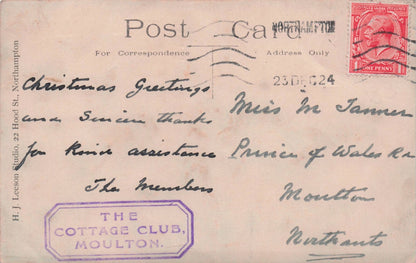 Post Card
For Correspondence
Address Only
NORTHAMPTON
23 DEC 24
ONE PENNY
H. J. Leeson Studio, 22 Hood St., Northampton
Christmas Greetings
and Sincere thanks
for kind assistance
The Members
Miss M Tanner
Prince of Wales Rd
Moulton
Northants
THE
COTTAGE CLUB,
MOULTON.